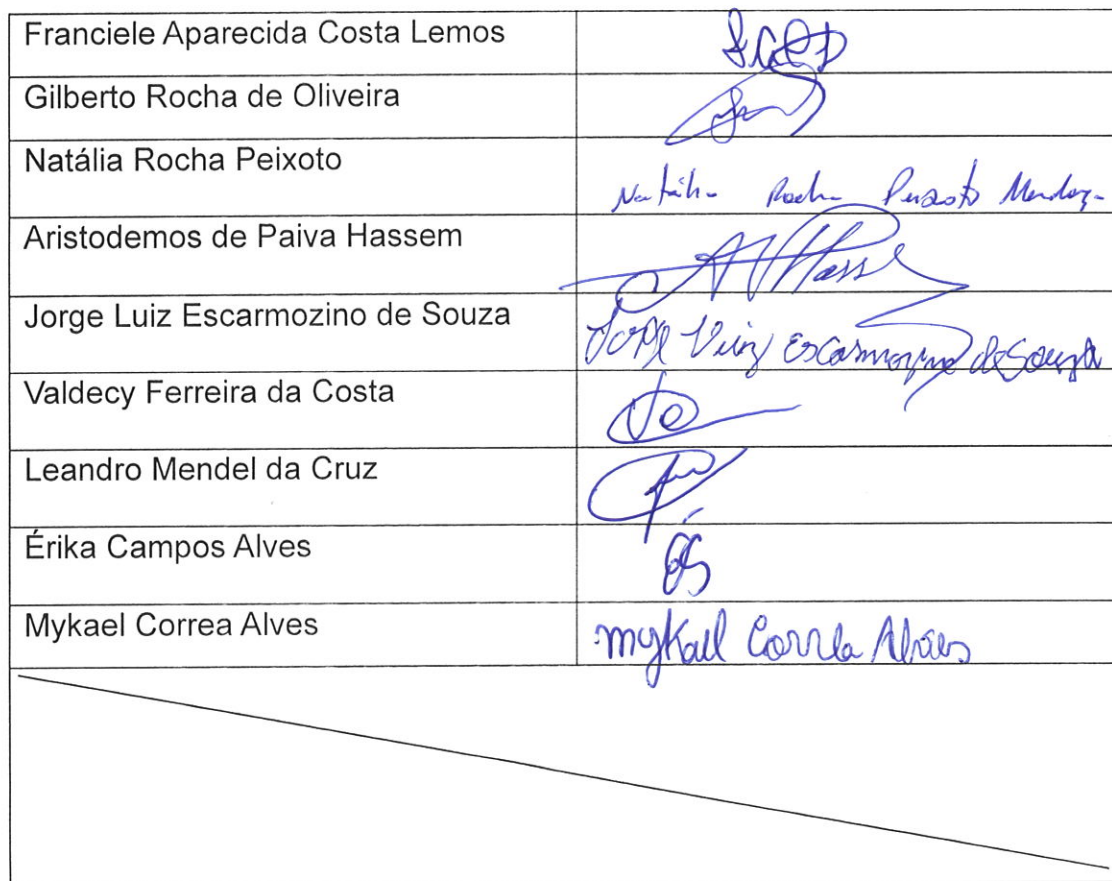 Franciele Aparecida Costa Lemos
Gilberto Rocha de Oliveira
Natália Rocha Peixoto
Natália Rocha Peixoto
Aristodemos de Paiva Hassem
Jorge Luiz Escarmozino de Souza
Jorge Luiz Escarmozino de Souza
Valdecy Ferreira da Costa
Leandro Mendel da Cruz
Érika Campos Alves
Mykael Correa Alves
Mykael Correa Alves